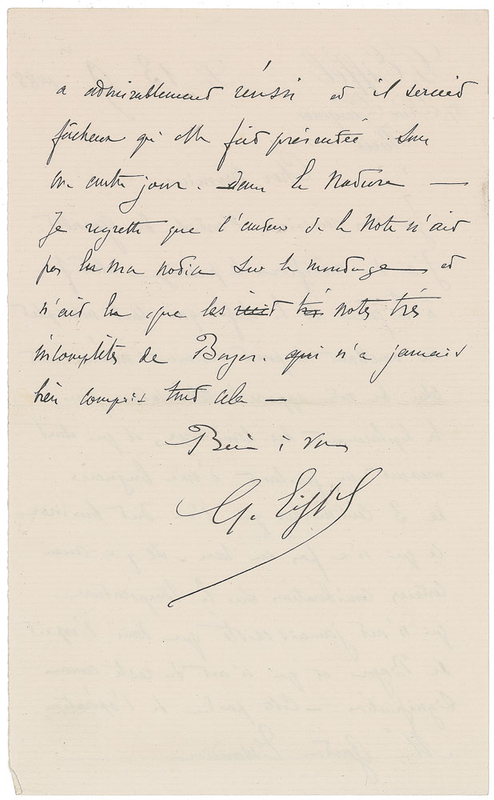 a admirablement réussi et il serait
fâcheux qu'elle fût présentée sous
un autre jour. dans la Nature —
Je regrette que l'auteur de la Note n'ait
pas lu ma notice sur le montage et
n'ait lu que les très notes très
incomplètes de Boyer. qui n'a jamais
bien compris tout cela —
Bien à vous
G. Eiffel